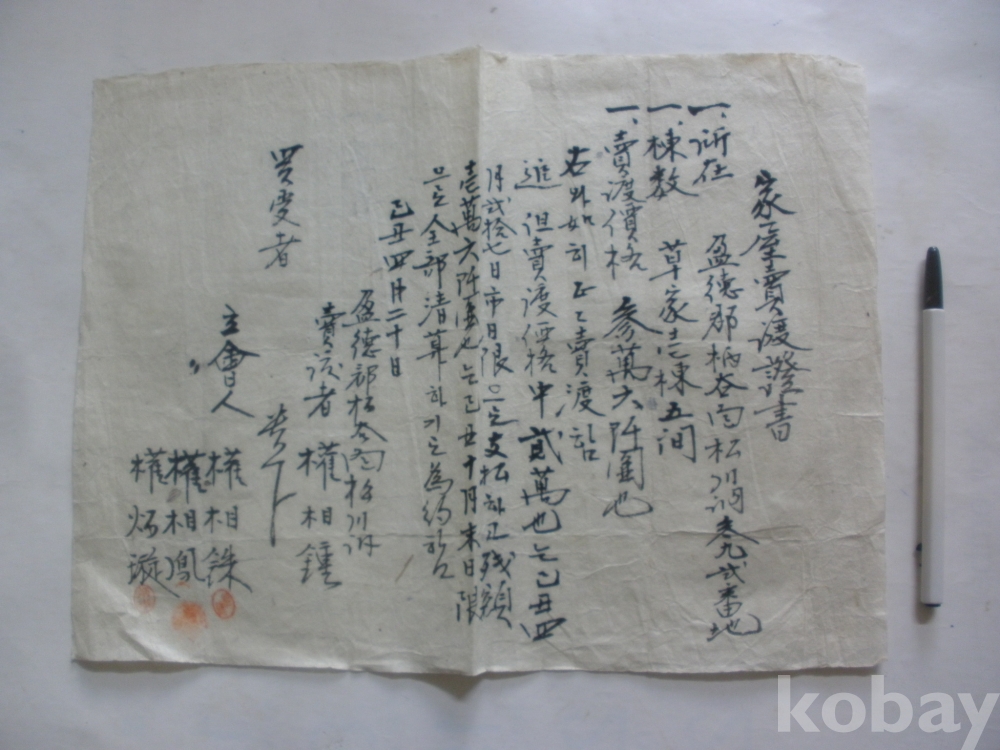 家屋賣渡證書
一、所在 盈德郡柄谷面松川洞参九弍番地
一、棟数 草家壱棟五间
一、賣渡價格 参萬六阡圓也
右와如히正히賣渡함
但賣渡價格中貳萬也는己丑四
月弐拾七日市日限으로支払하고残額
壱萬六阡圓也는己丑十月末日限
으로全部清算하기로為約함
己丑四月二十日
盈德郡柄谷面松川洞
賣渡者 權相鍾
買受者
立會人 權相銖
權相鳳
權炳璇
kobay